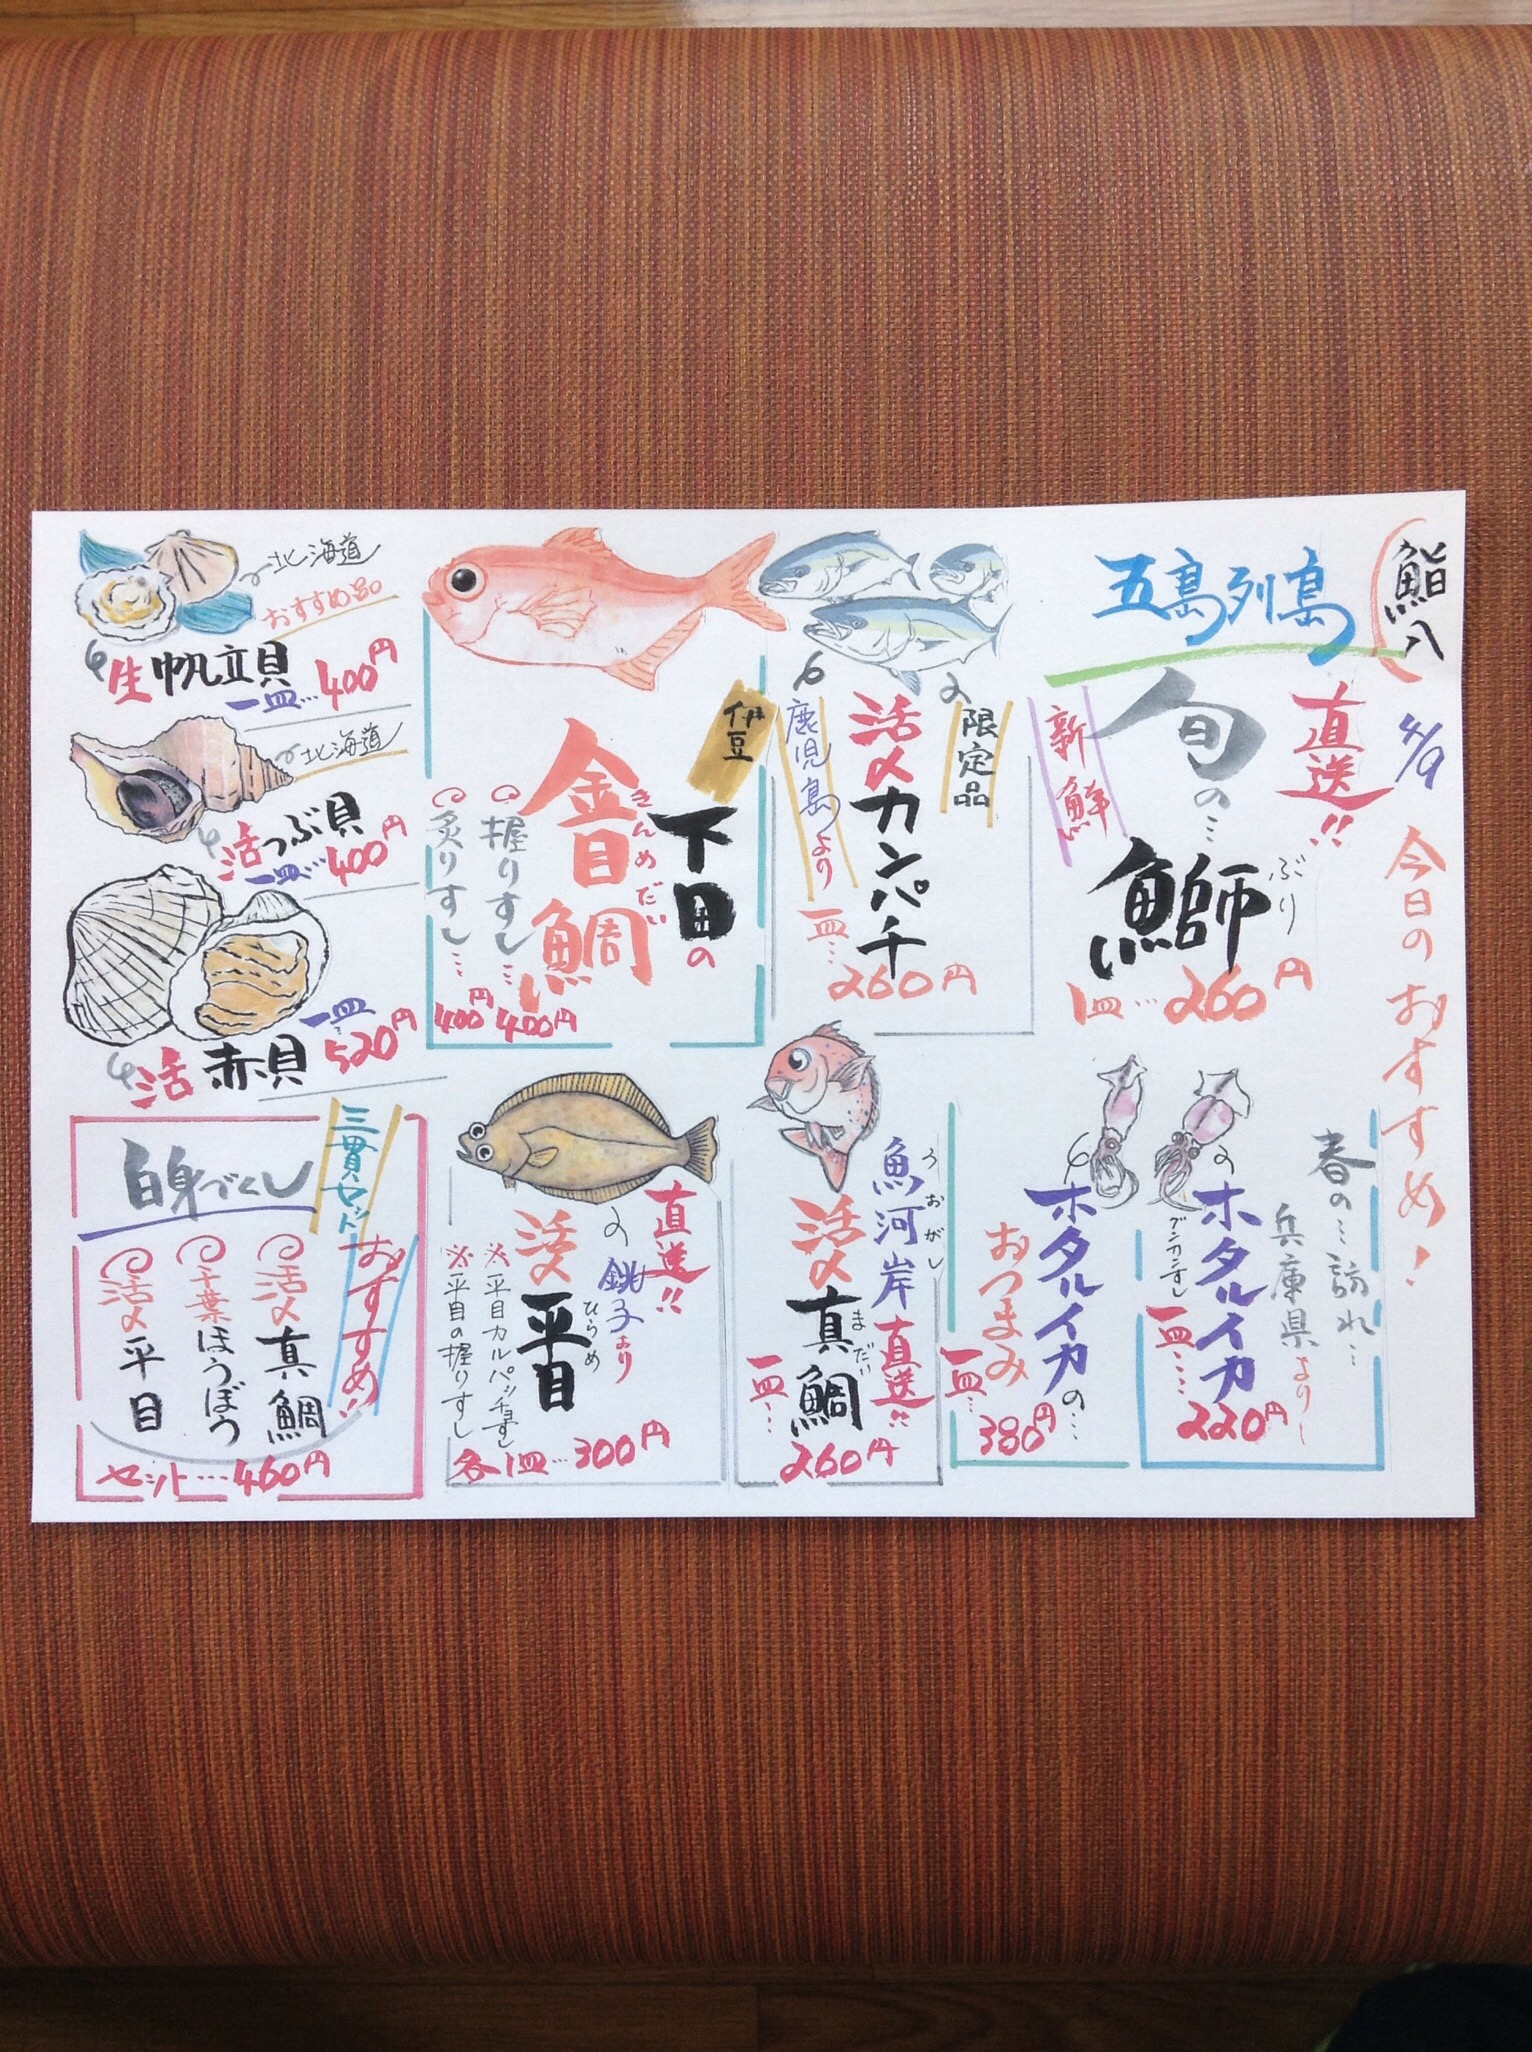 鮨八
4/9
今日のおすすめ!
五島列島
直送!!
旬の…
新鮮
鰤
ぶり
1皿…260円
限定品
活〆カンパチ
鹿児島より
一皿…
260円
伊豆
下田の
金目鯛
きんめだい
握りすし…400円
炙りすし…400円
北海道
おすすめ品
生帆立貝
一皿…400円
北海道
活つぶ貝
一皿…400円
活赤貝
一皿…520円
春の…訪れ…
兵庫県より
ホタルイカ
グンカンすし
一皿…220円
ホタルイカの…
おつまみ
一皿…380円
魚河岸直送!!
うおがし
活〆真鯛
まだい
一皿…
260円
直送!!
銚子より
活〆平目
ひらめ
※平目カルパッチョすし
※平目の握りすし
各1皿…300円
三貫セット
おすすめ!!
白身づくし
活〆真鯛
千葉ほうぼう
活〆平目
セット…460円